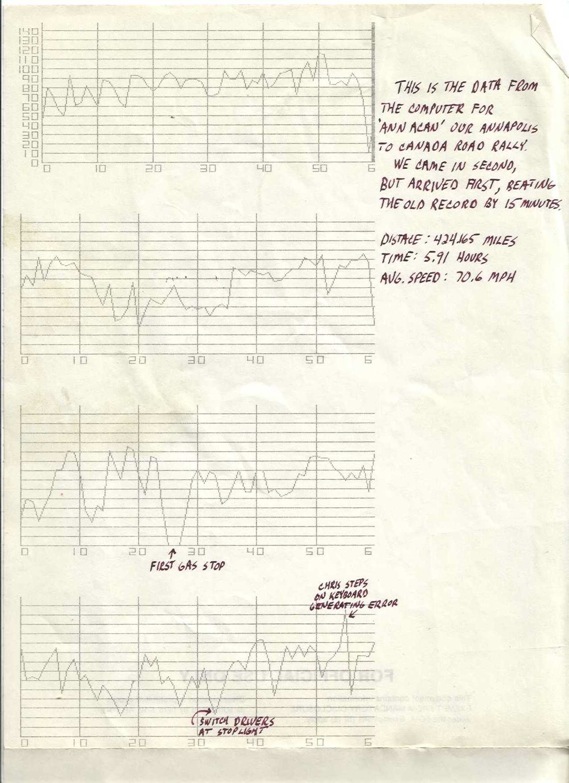 140
130
120
110
100
90
80
70
60
50
40
30
20
10
0
0 10 20 30 40 50 6
THIS IS THE DATA FROM
THE COMPUTER FOR
'ANN ACAN' OUR ANNAPOLIS
TO CANADA ROAD RALLY.
WE CAME IN SECOND,
BUT ARRIVED FIRST, BEATING
THE OLD RECORD BY 15 MINUTES.
DISTACE: 424.165 MILES
TIME: 5.91 HOURS
AVG. SPEED: 70.6 MPH
0 10 20 30 40 50 6
0 10 20 30 40 50 6
FIRST GAS STOP
CHRIS STEPS
ON KEYBOARD
GENERATING ERROR
FOR OFFICIAL USE ONLY
SWITCH DRIVERS
AT STOPLIGHT
0 10 20 30 40 50 6